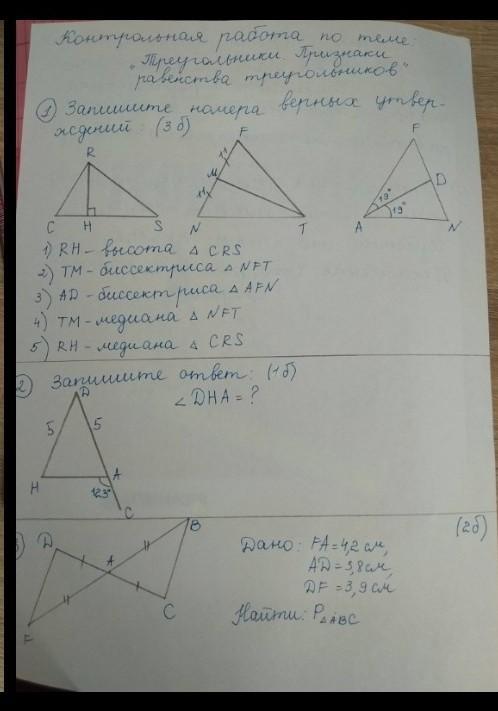 Контрольная работа по теме:
"Треугольники. Признаки
равенства треугольников"
1 Запишите номера верных утвер-
ждений: (3б)
R
F
F
M
11
11
D
19°
19°
C H S
N T
A N
1) RH - высота △ CRS
2) TM - биссектриса △ NFT
3) AD - биссектриса △ AFN
4) TM - медиана △ NFT
5) RH - медиана △ CRS
2 Запишите ответ: (1б)
D
∠DHA = ?
5 5
H A
123°
C
B
(2б)
D
A
C
F
Дано: FA=4,2 см,
AD=3,8см,
DF=3,9см
Найти: P△ABC